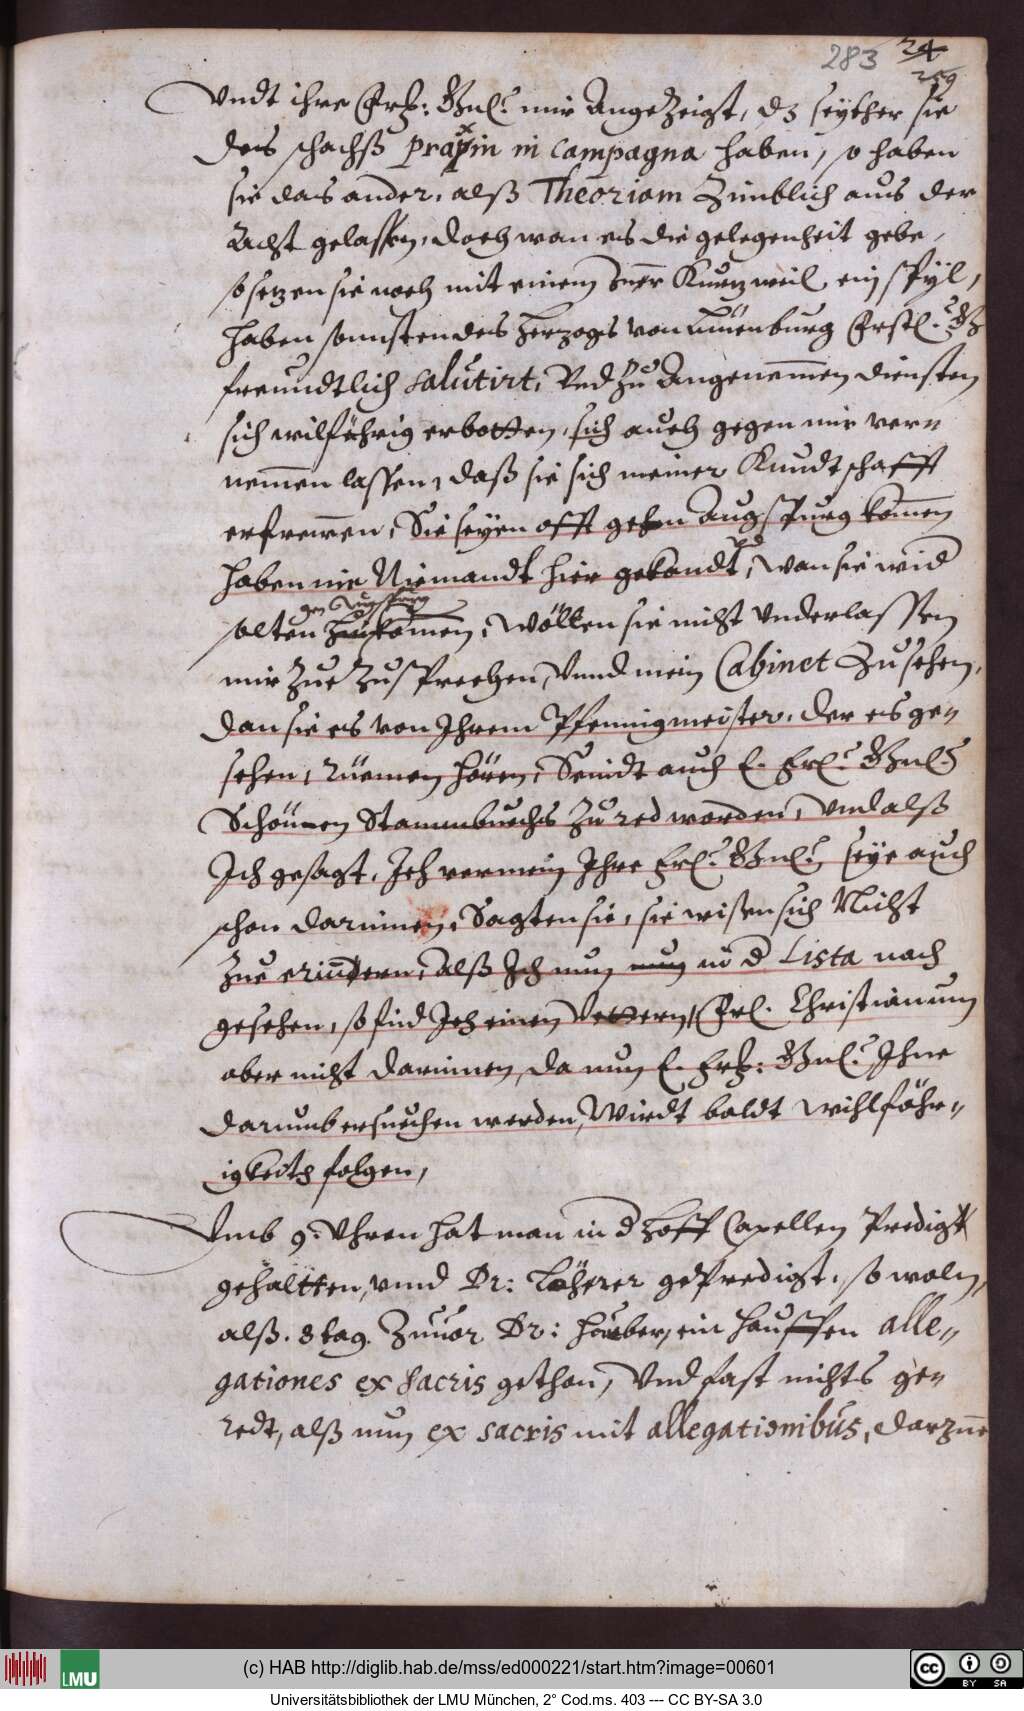 283 24
259
Vndt ihre Erz: Gnl: mir Angezeigt, dz seyther sie
des schachß praxin in campagna haben, so haben
sie das ander, alß Theoriam Zimblich aus der
Acht gelassen, doch wan es die gelegenheit gebe,
so setzen sie noch mit einem Kurtzweil ein spyl,
haben sonnsten des Herzogs von Lünenburg Frstl. Gn
freundtlich salutirt, Vnd zu Angenemen diensten
sich wilföhrig erbotten, sich auch gegen mir ver„
nemen lassen, daß sie sich meiner Kundtschafft
erfrewen, Sie seyen offt gehn Augspurg komen
haben nie Niemandt hier gekandt, vnd wan sie wid
solten gen Augspurg komen, wöllen sie nicht vnderlassen
mir Zue Zusprechen, Vnnd mein Cabinet Zu sehen,
dan sie es von Ihrem Pfennigmeister, der es ge„
sehen, rüemen hören, Seindt auch E. Frl: Gnl:
Schönen Stammbuechs Zu red worden, Vnd alß
Ich gesagt, Ich vermein Ihre Frl: Gnl: seye auch
schon darinnen, Sagten sie, sie wißen sich Nicht
Zue erindern, alß Ich nun nun in d Lista nach
gesehen, so find Ich einen Vettern, Frl. Christianum
aber nicht darinnen, da nun E. Frz: Gnl: Ihne
darumb ersuechen werden, Wirdt baldt wihlföhr„
igkeith folgen,
Vmb 9. Vhren hat man in d Hoff Capellen Predigt
gehaltten, vnnd Dr: gepredigt, so woln,
alß. 8 tag. Zuuor Dr: ein hauffen alle„
gationes ex sacris gethon, Vnd fast nichts ge„
redt, alß nun ex sacris mit allegationibus, darzue
(c) HAB http://diglib.hab.de/mss/ed000221/start.htm?image=00601
LMU
cc BY SA
Universitätsbibliothek der LMU München, 2° Cod.ms. 403 --- CC BY-SA 3.0